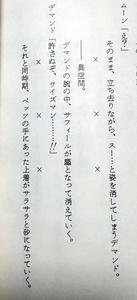 ムーン「えっ?」
そのまま、立ち去りながら、スー…と姿を消してしまうデマンド。
× × ×
――異空間。
デマンドの腕の中、サフィールが塵となって消えていく。
デマンド「許さぬぞ、ワイズマン……!!」
× × ×
それと同時期、ベッツの手にあった上着がサラサラと砂になっていく。